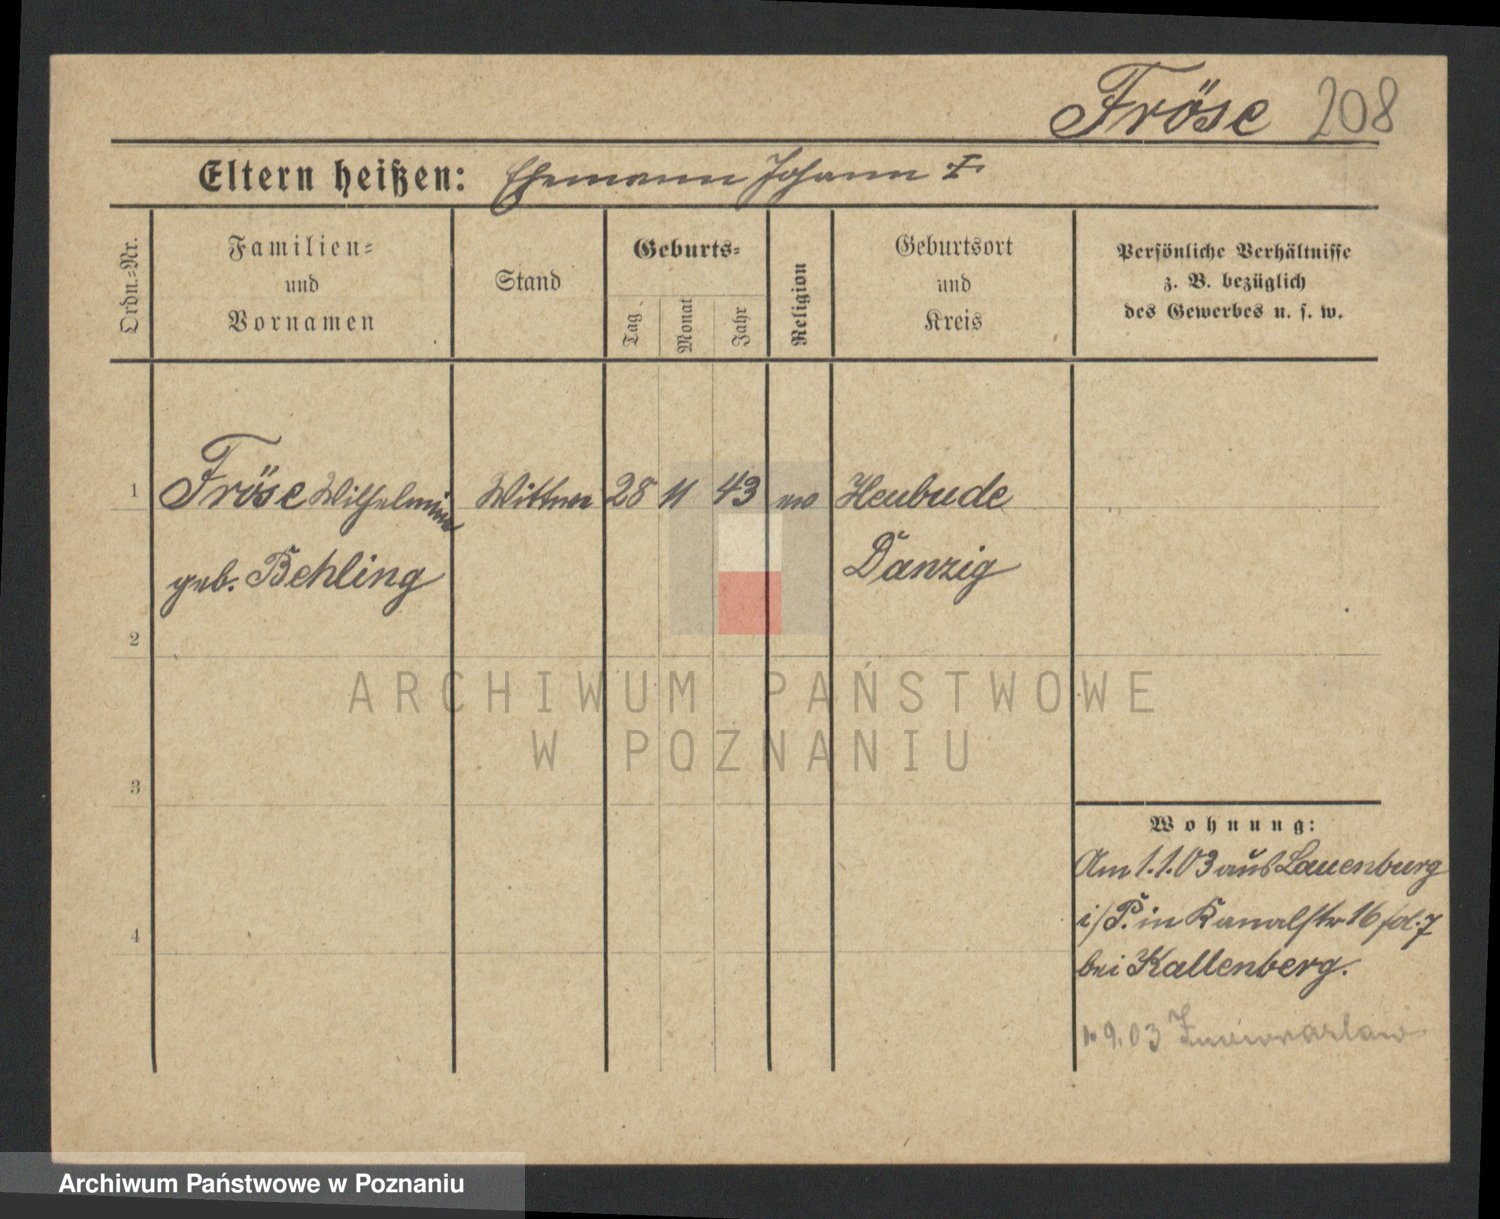 Fröse 208
Eltern heißen: Ehemann Johann F
Ordn.=Nr.
Familien=
und
Vornamen
Stand
Geburts=
Tag
Monat
Jahr
Religion
Geburtsort
und
Kreis
Persönliche Verhältnisse
z. B. bezüglich
des Gewerbes u. s. w.
1 Fröse Wilhelmine Wittwe 28 11 43 ev Heubude
geb. Behling Danzig
2
3
4
Wohnung:
Am 1.1.03 aus Lauenburg
i/P. in Kanalstr 16 fol. 7
bei Kallenberg.
9. 03 Inowrazlaw
ARCHIWUM PAŃSTWOWE
W POZNANIU
Archiwum Państwowe w Poznaniu